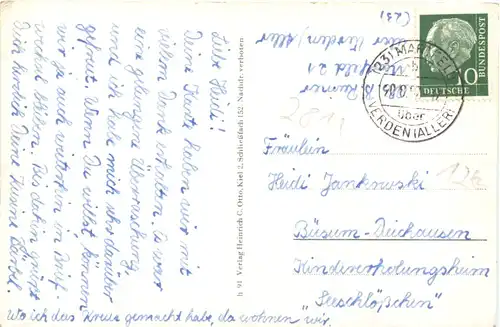 Liebe Heidi!
Deine Karte haben wir mit
vielem Dank erhalten. Es war
eine gelungene Überraschung
und ich habe mich sehr darüber
gefreut. Wenn Du willst, können
wir ja auch weiterhin in Brief-
wechsel bleiben. Bis dahin grüßt
Dich herzlich Deine Bärbel.
Wo ich das Kreuz gemacht habe, da wohnen wir.
h 91 Verlag Heinrich C. Otto, Kiel 2, Schließfach 152 Nachdr. verboten
über Verden/Aller
(23)
(23)
über
VERDEN (ALLER)
10
DEUTSCHE
BUNDESPOST
281
12€
Fräulein
Heidi Jankowski
Büsum-Deichhausen
Kindererholungsheim
"Seeschlößchen"